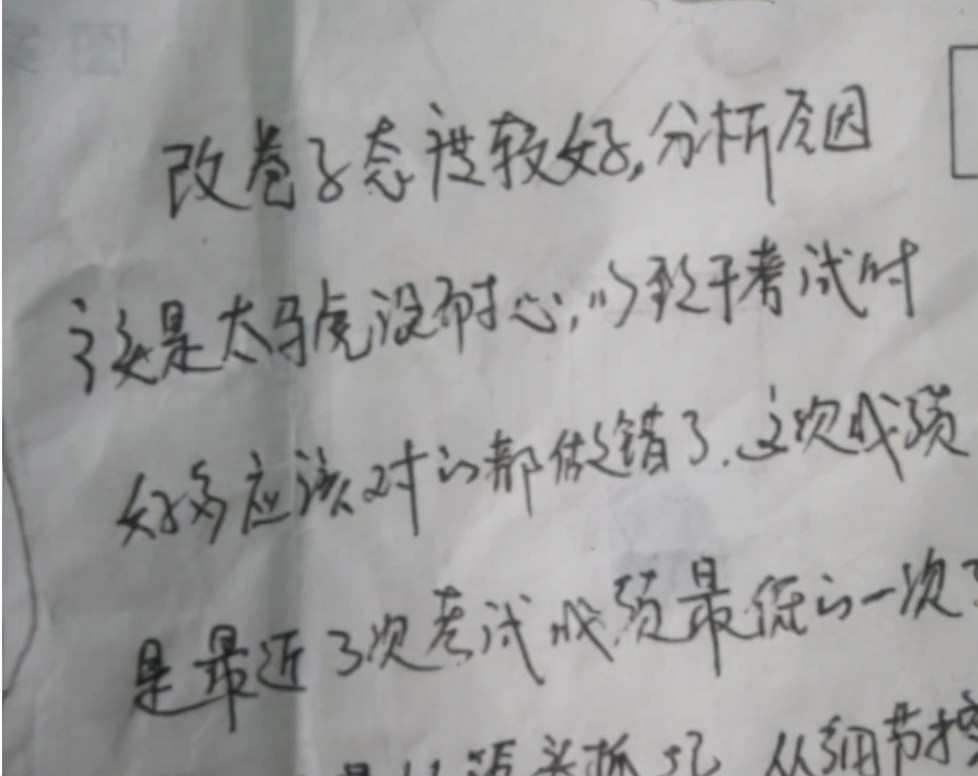 改卷子态度较好,分析原因
这是太马虎没耐心,以致于考试时
好多应该对的都做错了.这次成绩
是最近3次考试成绩最低的一次了
源头抓起 从细节